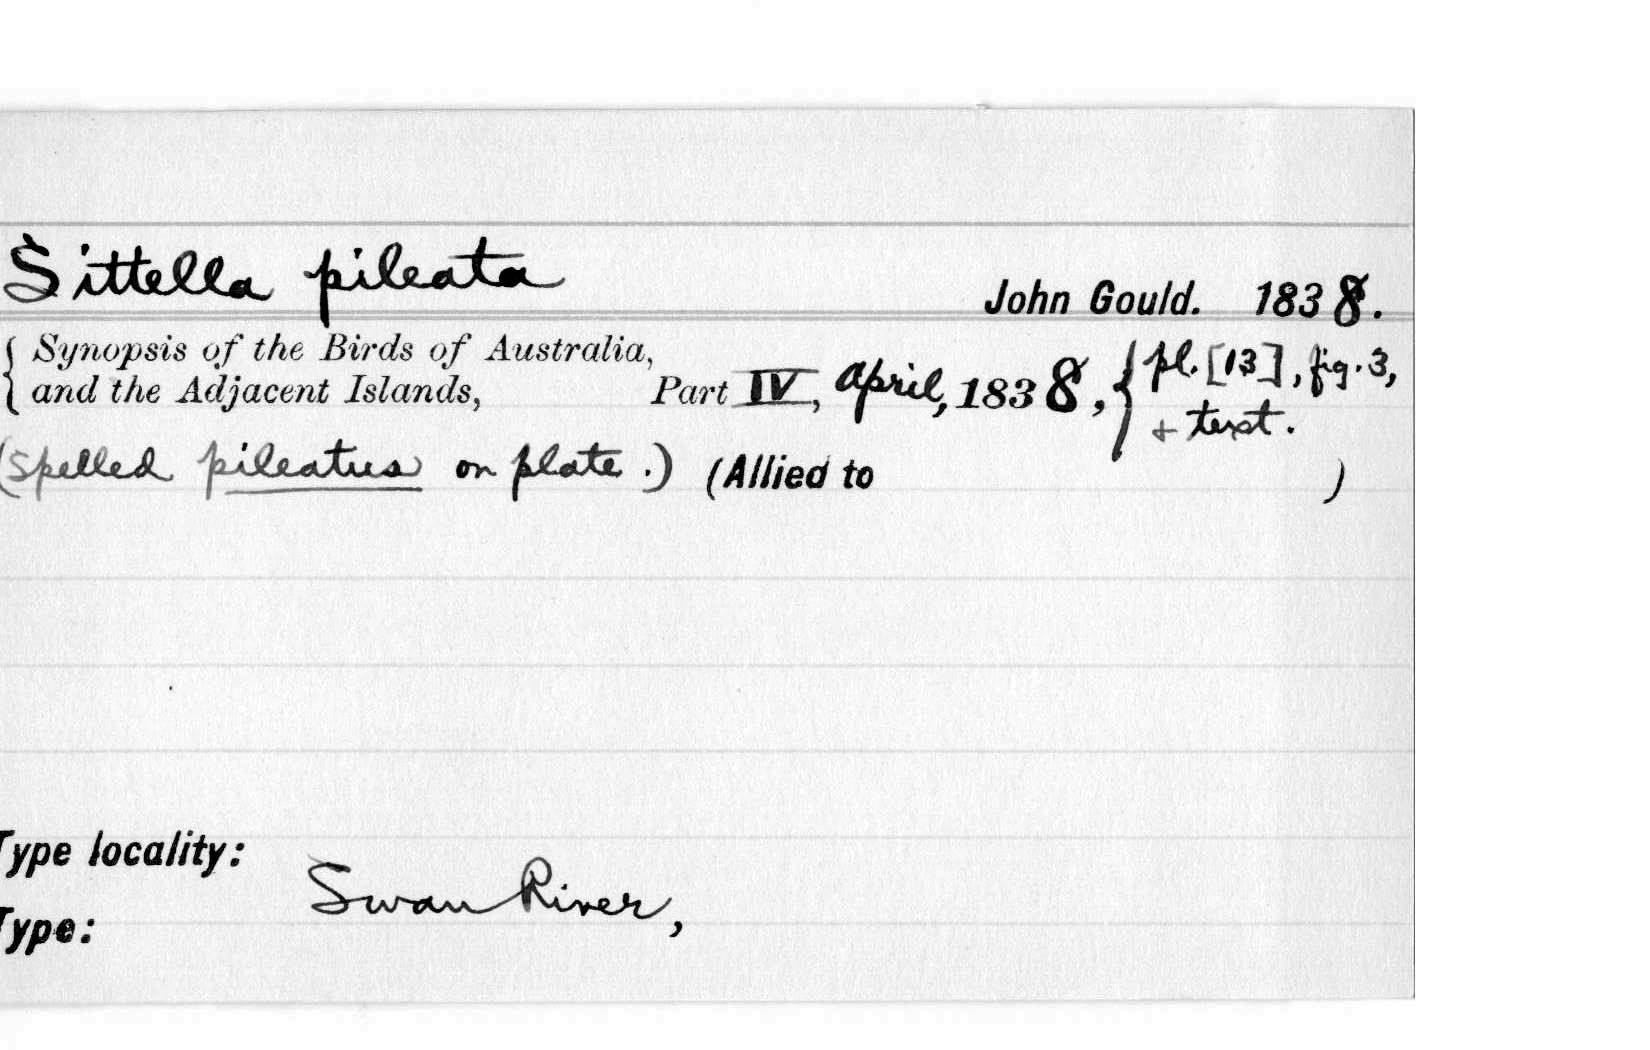 Sittella pileata
John Gould. 1838.
{ Synopsis of the Birds of Australia,
and the Adjacent Islands, Part IV, April, 1838, { pl. [13], fig. 3,
+ text.
(Spelled pileatus on plate.) (Allied to )
Type locality:
Swan River,
Type: